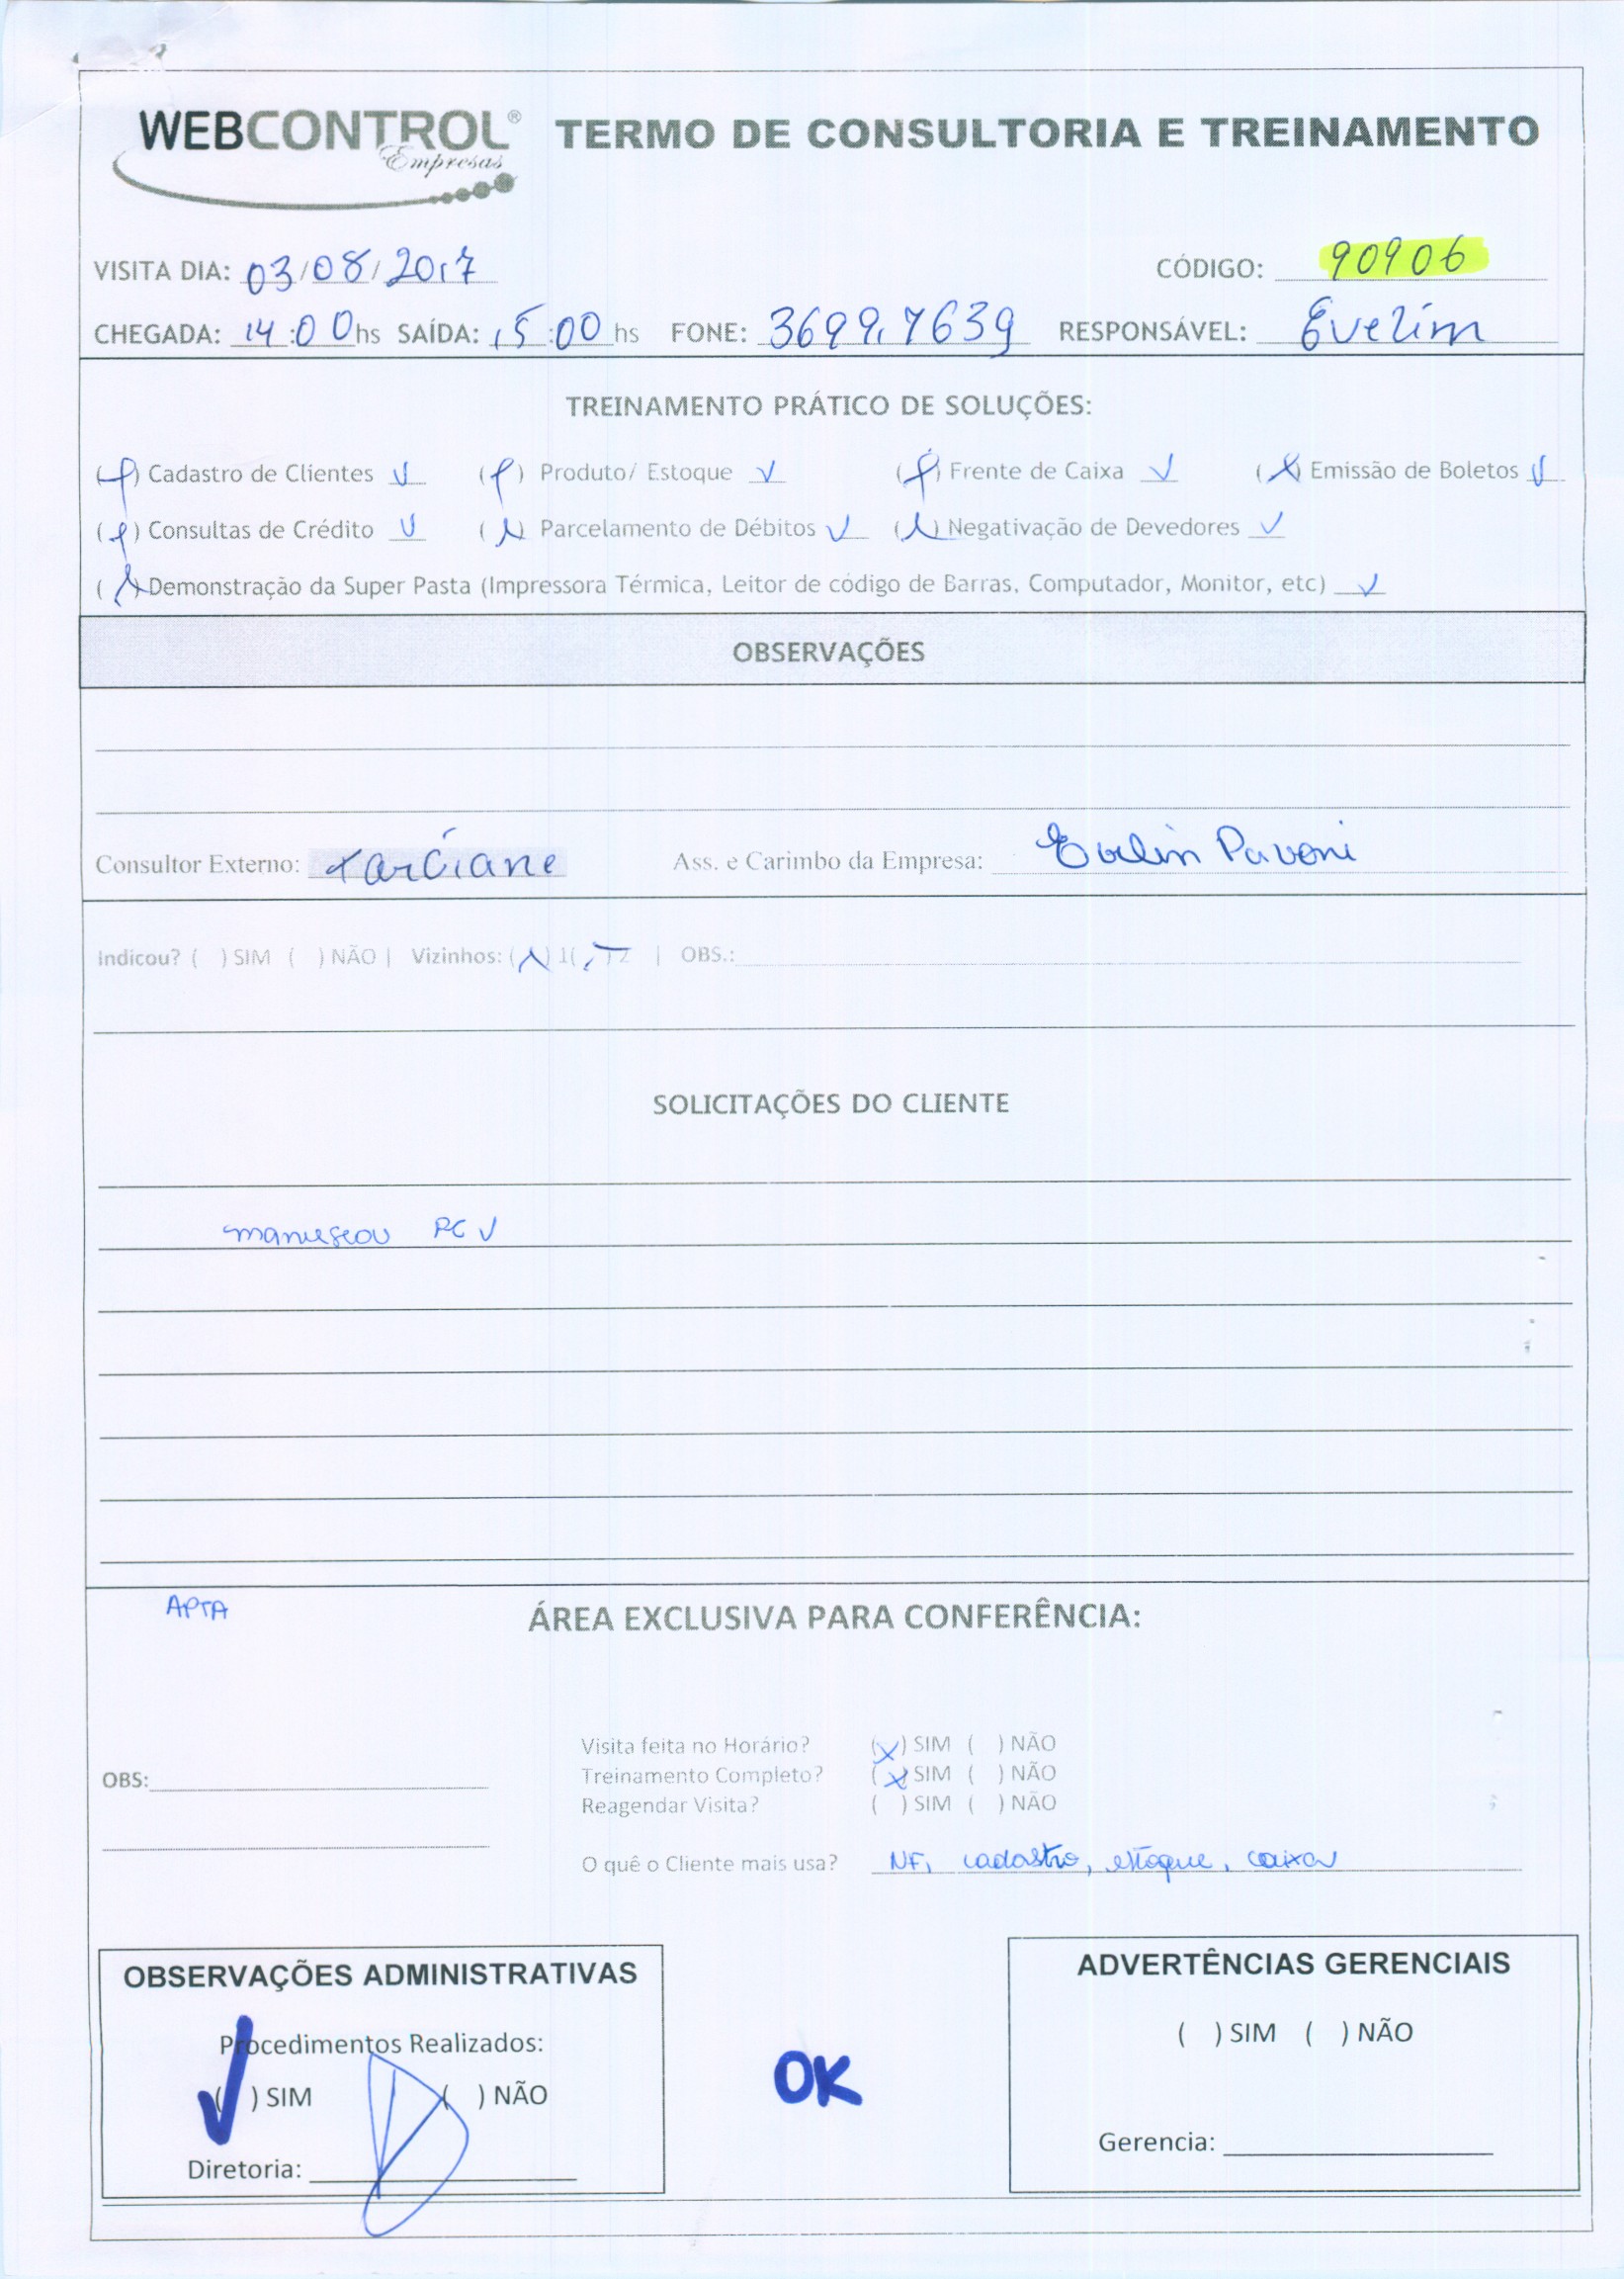 WEBCONTROL® TERMO DE CONSULTORIA E TREINAMENTO
Empresas
VISITA DIA: 03/08/2017 CÓDIGO: 90906
CHEGADA: 14:00hs SAÍDA: 15:00 hs FONE: 3699.7639 RESPONSÁVEL: Evelim
TREINAMENTO PRÁTICO DE SOLUÇÕES:
( ) Cadastro de Clientes ✓ ( ) Produto/ Estoque ✓ ( ) Frente de Caixa ✓ (X) Emissão de Boletos ✓
( ) Consultas de Crédito ✓ ( ) Parcelamento de Débitos ✓ ( ) Negativação de Devedores ✓
( ) Demonstração da Super Pasta (Impressora Térmica, Leitor de código de Barras, Computador, Monitor, etc) ✓
OBSERVAÇÕES
Consultor Externo: Tarciane Ass. e Carimbo da Empresa: Evelin Pavoni
Indicou? ( ) SIM ( ) NÃO | Vizinhos: ( ) 1( ) 2 | OBS.:
SOLICITAÇÕES DO CLIENTE
manuseou PC ✓
APTA
ÁREA EXCLUSIVA PARA CONFERÊNCIA:
Visita feita no Horário? (X) SIM ( ) NÃO
Treinamento Completo? (X) SIM ( ) NÃO
OBS:
Reagendar Visita? ( ) SIM ( ) NÃO
O quê o Cliente mais usa? NF, cadastro, estoque, caixa
OBSERVAÇÕES ADMINISTRATIVAS
Procedimentos Realizados:
(✓) SIM ( ) NÃO
Diretoria:
OK
ADVERTÊNCIAS GERENCIAIS
( ) SIM ( ) NÃO
Gerencia: